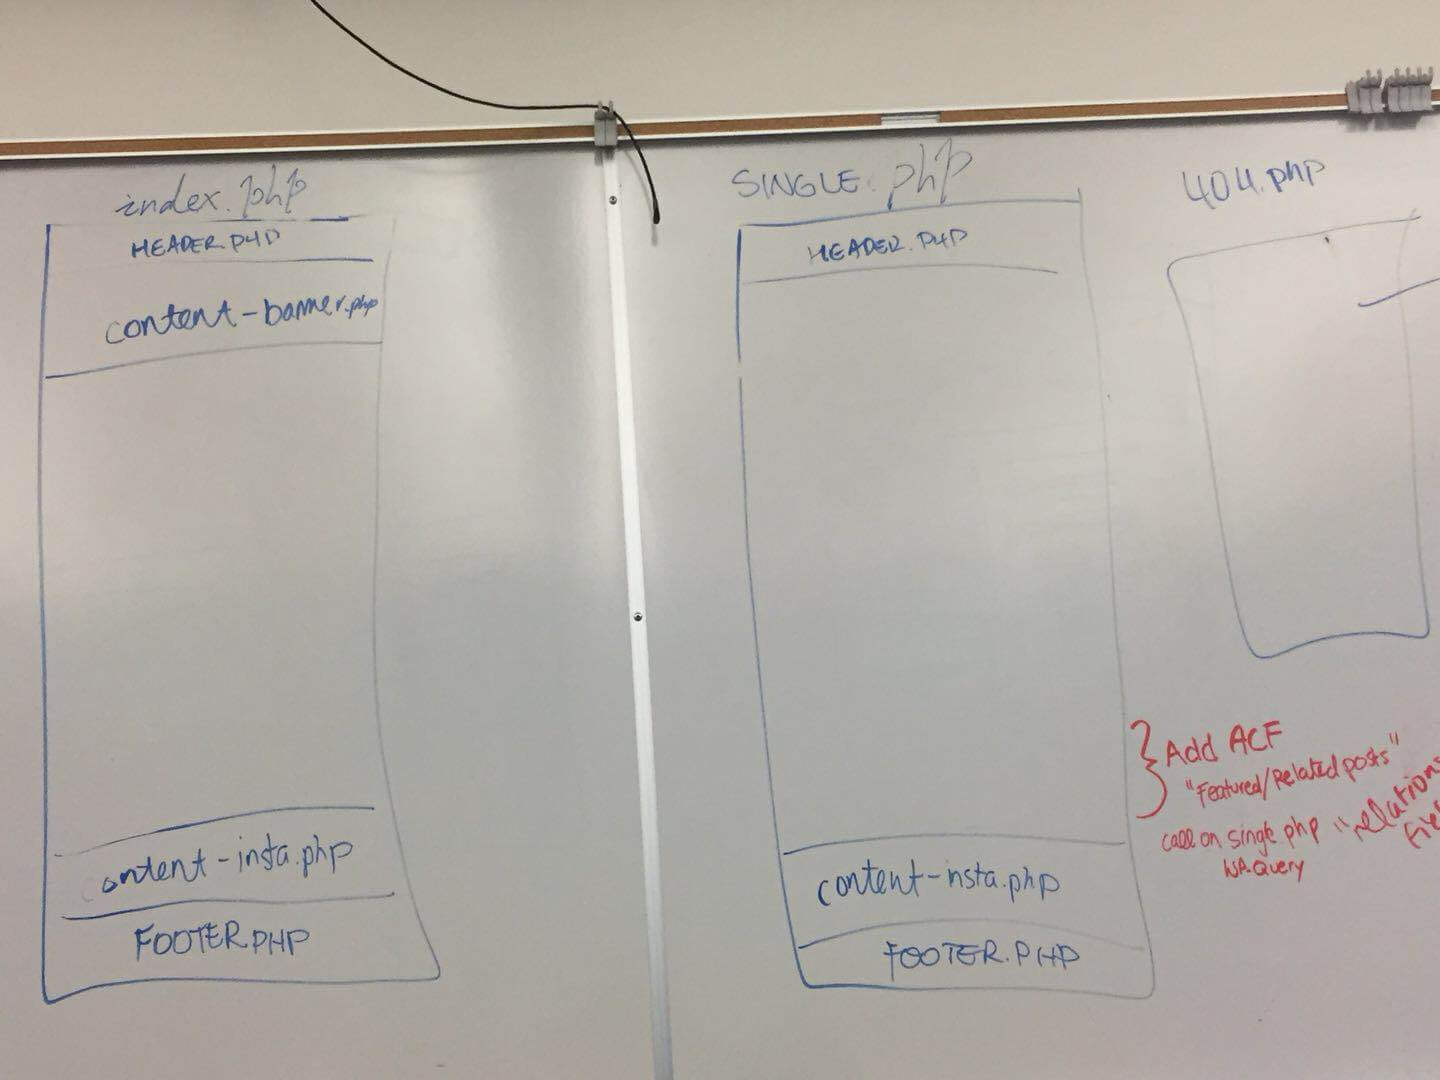 index.php
HEADER.PHP
content-banner.php
ontent-insta.php
FOOTER.PHP
SINGLE.php
HEADER.PHP
content-insta.php
FOOTER.PHP
404.php
Add ACF
"Featured/Related posts"
call on single php "relations
WP-Query